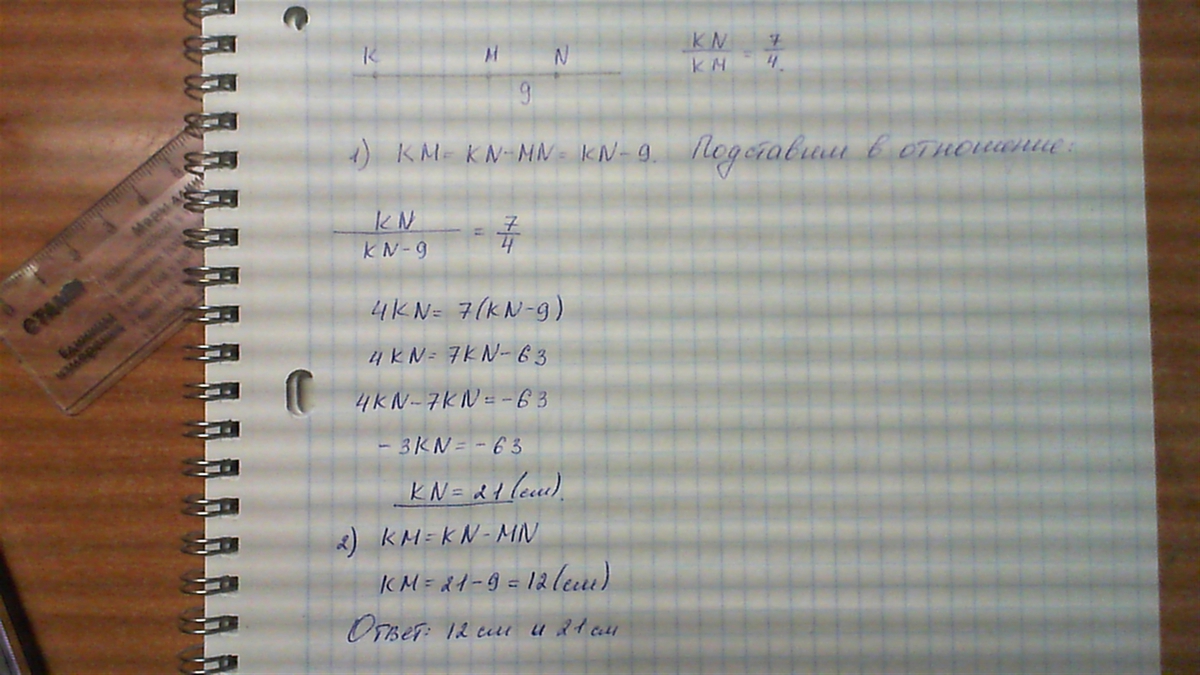 K M N KN/KM = 7/4.
9
1) KM = KN-MN = KN-9. Подставим в отношение:
KN/KN-9 = 7/4
4KN = 7(KN-9)
4KN = 7KN-63
4KN-7KN = -63
-3KN = -63
KN = 21(см).
2) KM = KN-MN
KM = 21-9 = 12(см)
Ответ: 12 см и 21 см
0 1 2 3 4
СТАММ
Единицы
измерения